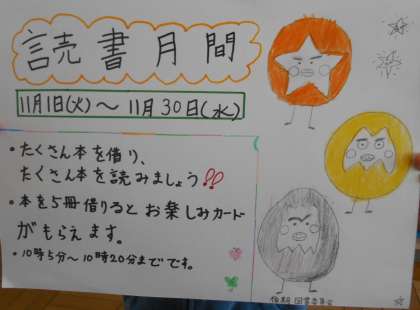 読書月間
11月1日(火)～11月30日(水)
・たくさん本を借り、
たくさん本を読みましょう!!
・本を5冊借りるとお楽しみカード
がもらえます。
・10時5分～10時20分までです。
後期 図書委員会